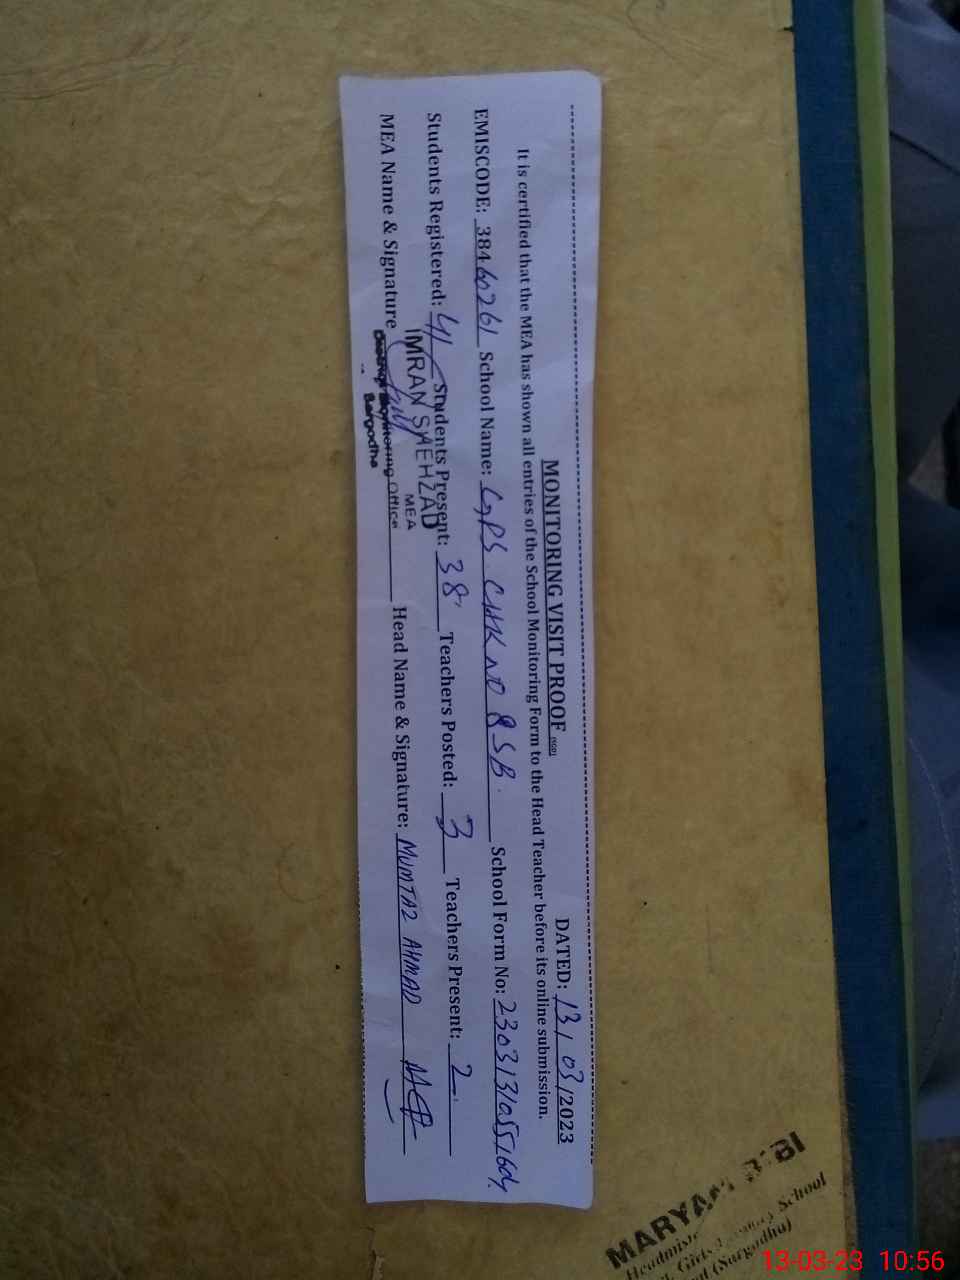 MONITORING VISIT PROOF (SGD) DATED: 13/03/2023
It is certified that the MEA has shown all entries of the School Monitoring Form to the Head Teacher before its online submission.
EMISCODE: 38460261 School Name: GPS CHK NO 8 SB. School Form No:
Students Registered: 41 Students Present: 38 Teachers Posted: 3 Teachers Present: 2
MEA Name & Signature Head Name & Signature: MUMTAZ AHMAD
IMRAN SHEHZAD
MEA
Monitoring Office
Sargodha
MARYAM BIBI
School
(Sargodha)
13-03-23 10:56